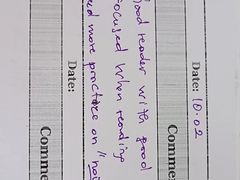 Comme
Date: 10.02
Good reader with good
focused when reading
need more practice on "noi
Date:
Comme